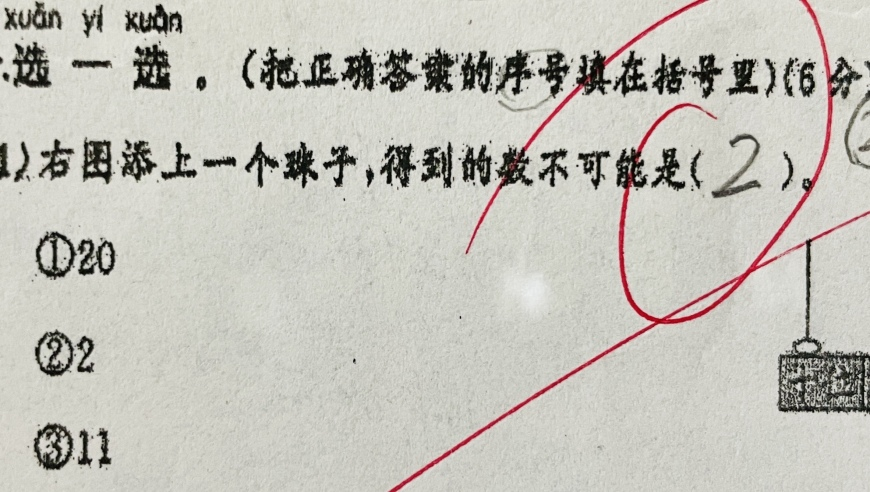 xuǎn yí xuǎn
选一选。(把正确答案的序号填在括号里)(6分)
1)右图添上一个珠子,得到的数不可能是( 2 )。
①20
②2
③11
十位